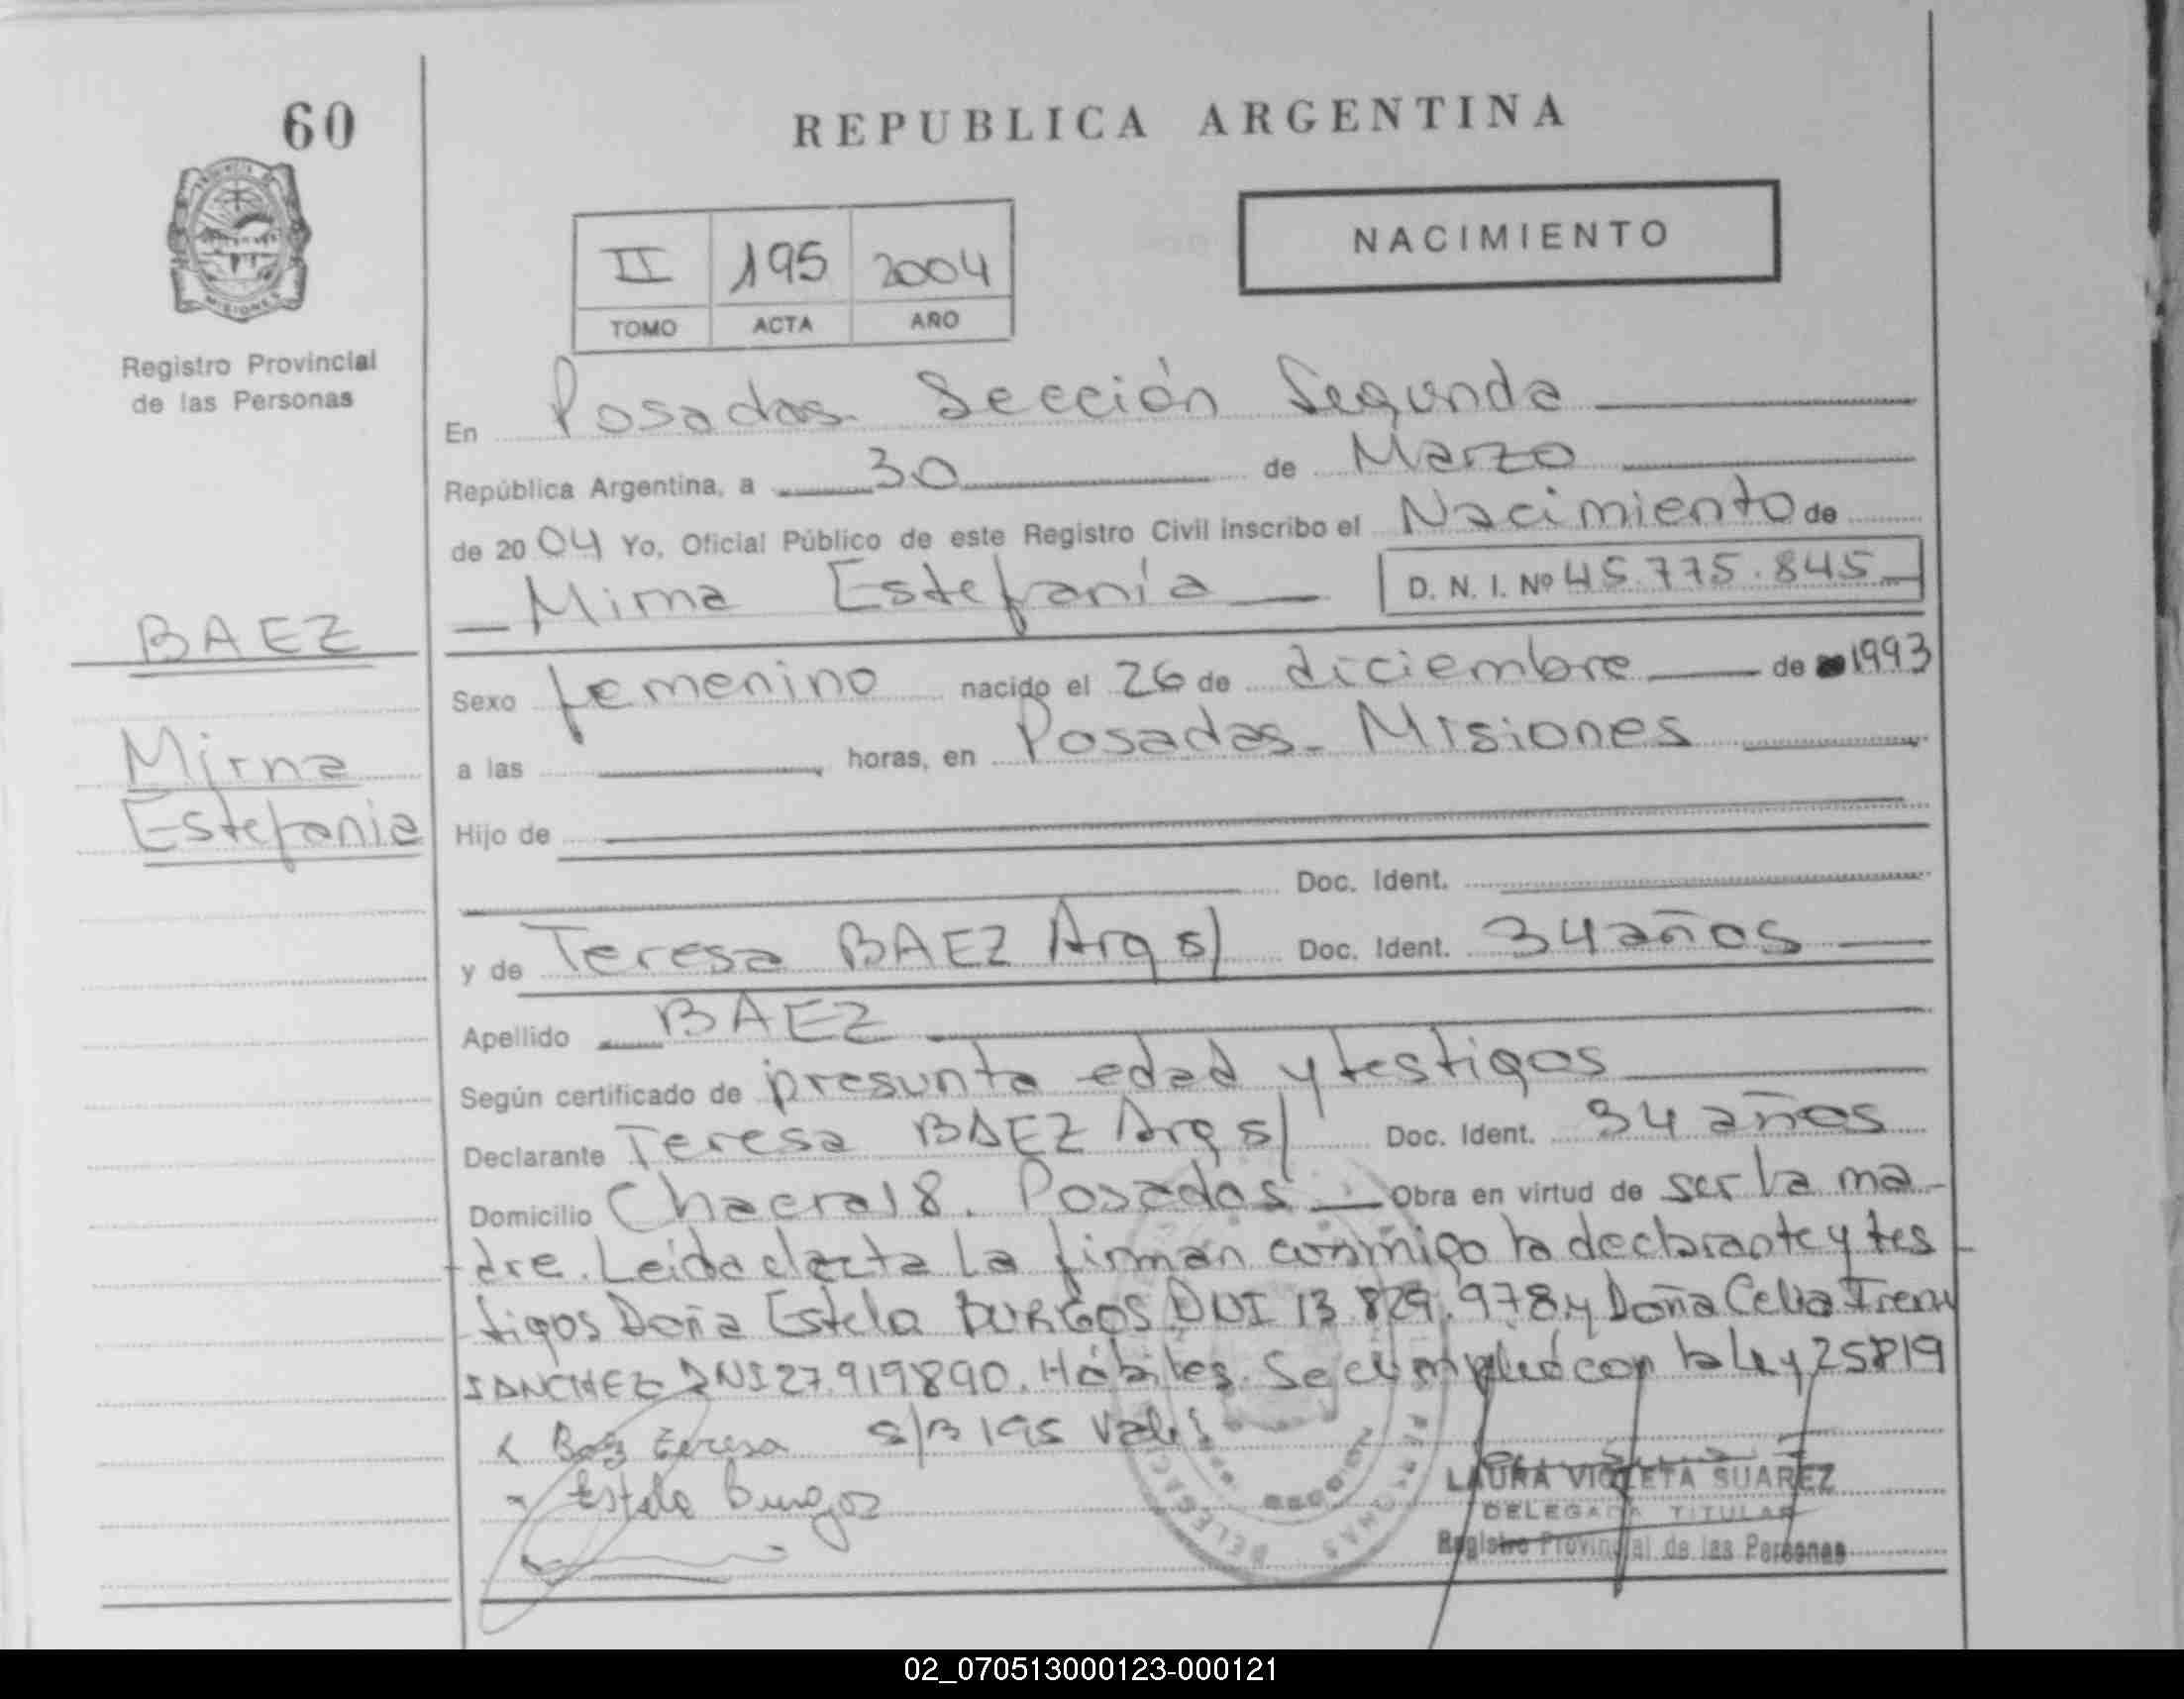 60
REPUBLICA ARGENTINA
NACIMIENTO
II 195 2004
TOMO ACTA AÑO
Registro Provincial
de las Personas
MISIONES
En Posadas. Sección Segunda
República Argentina, a 30 de Marzo
de 2004 Yo, Oficial Público de este Registro Civil inscribo el Nacimiento de
Mirna Estefanía D. N. I. Nº 45.775.845
BAEZ
Mirna
Estefania
Sexo femenino nacido el 26 de diciembre de 1993
a las horas, en Posadas - Misiones
Hijo de
Doc. Ident.
y de Teresa BAEZ Arg s/ Doc. Ident. 34 años
Apellido BAEZ
Según certificado de presunta edad y testigos
Declarante Teresa BAEZ Arg s/ Doc. Ident. 34 años
Domicilio Chacra 18. Posadas Obra en virtud de ser la ma-
dre. Leída el acta la firman conmigo la declarante y tes-
tigos Doña Estela BURGOS DNI 13.829.978 y Doña Celia
SANCHEZ DNI 27.919890. Hábiles. Se cumplió con la Ley 25819
Baez Teresa S/B 195 Vale
Estela Burgos
LAURA VIOLETA SUAREZ
DELEGADA TITULAR
Registro Provincial de las Personas
02_070513000123-000121